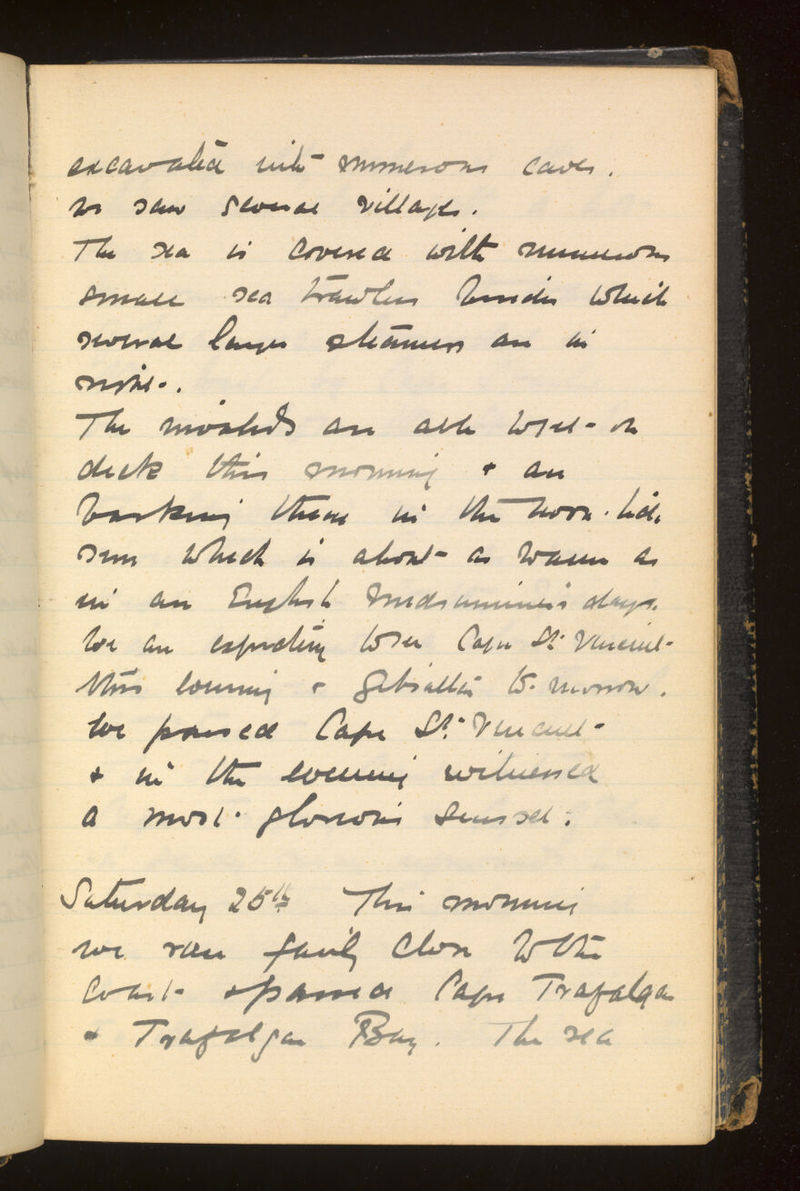 excavated into numerous caves.
we saw several villages.
The sea is covered with numerous
small sea trawlers besides which
several larger steamers are in
sight.
The invalids are able to get on
deck this morning & are
basking there in the noon-tide
sun which is about as warm as
in an English Midsummer's days.
We are expecting to see Cape St. Vincent
this evening & Gibraltar to-morrow.
We passed Cape St. Vincent
& in the evening witnessed
a most glorious sunset.
Saturday 25th This morning
we ran fairly close to the
coast & passed Cape Trafalgar
& Trafalgar Bay. The sea